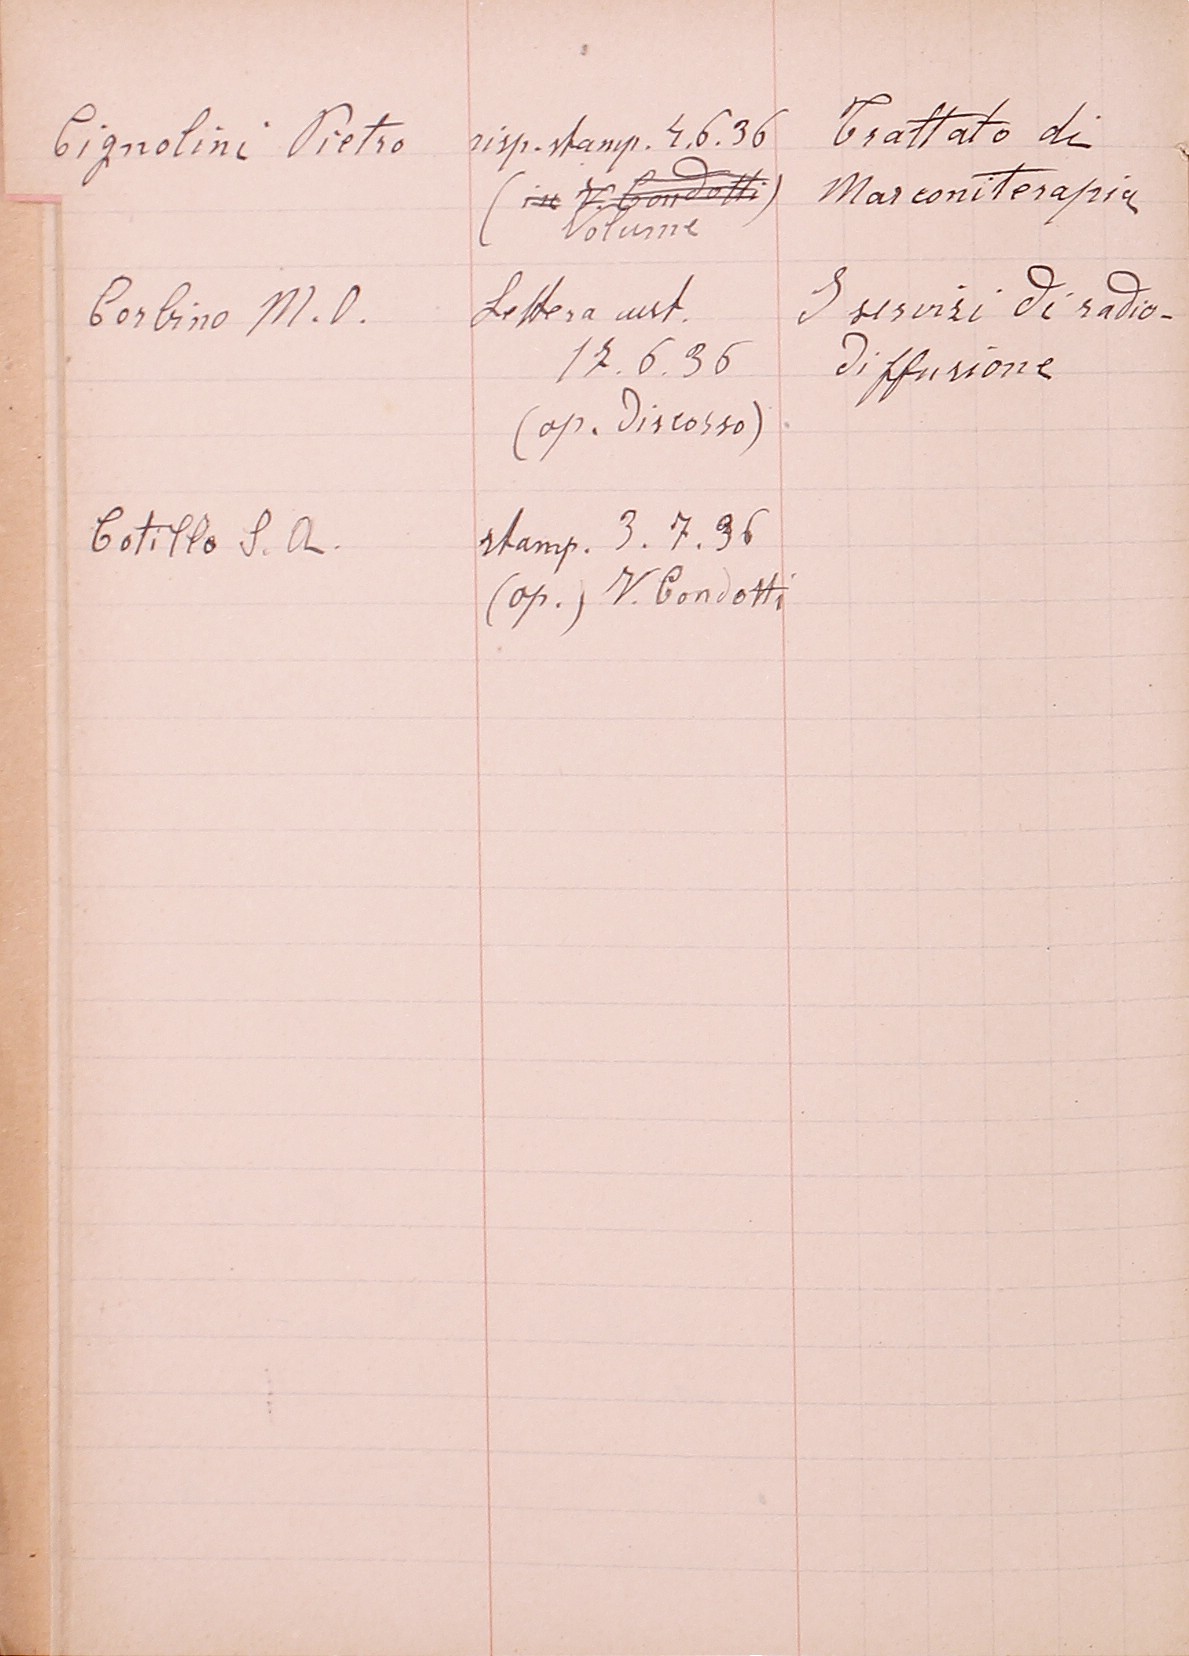 Cignolini Pietro risp. stamp. 4.6.36 Trattato di
(in V. Condotti) Marconiterapia
Volume
Corbino M.O. Lettera aut. I servizi di radio-
12.6.36 diffusione
(op. Discorso)
Cotillo S. A. stamp. 3.7.36
(op.) V. Condotti